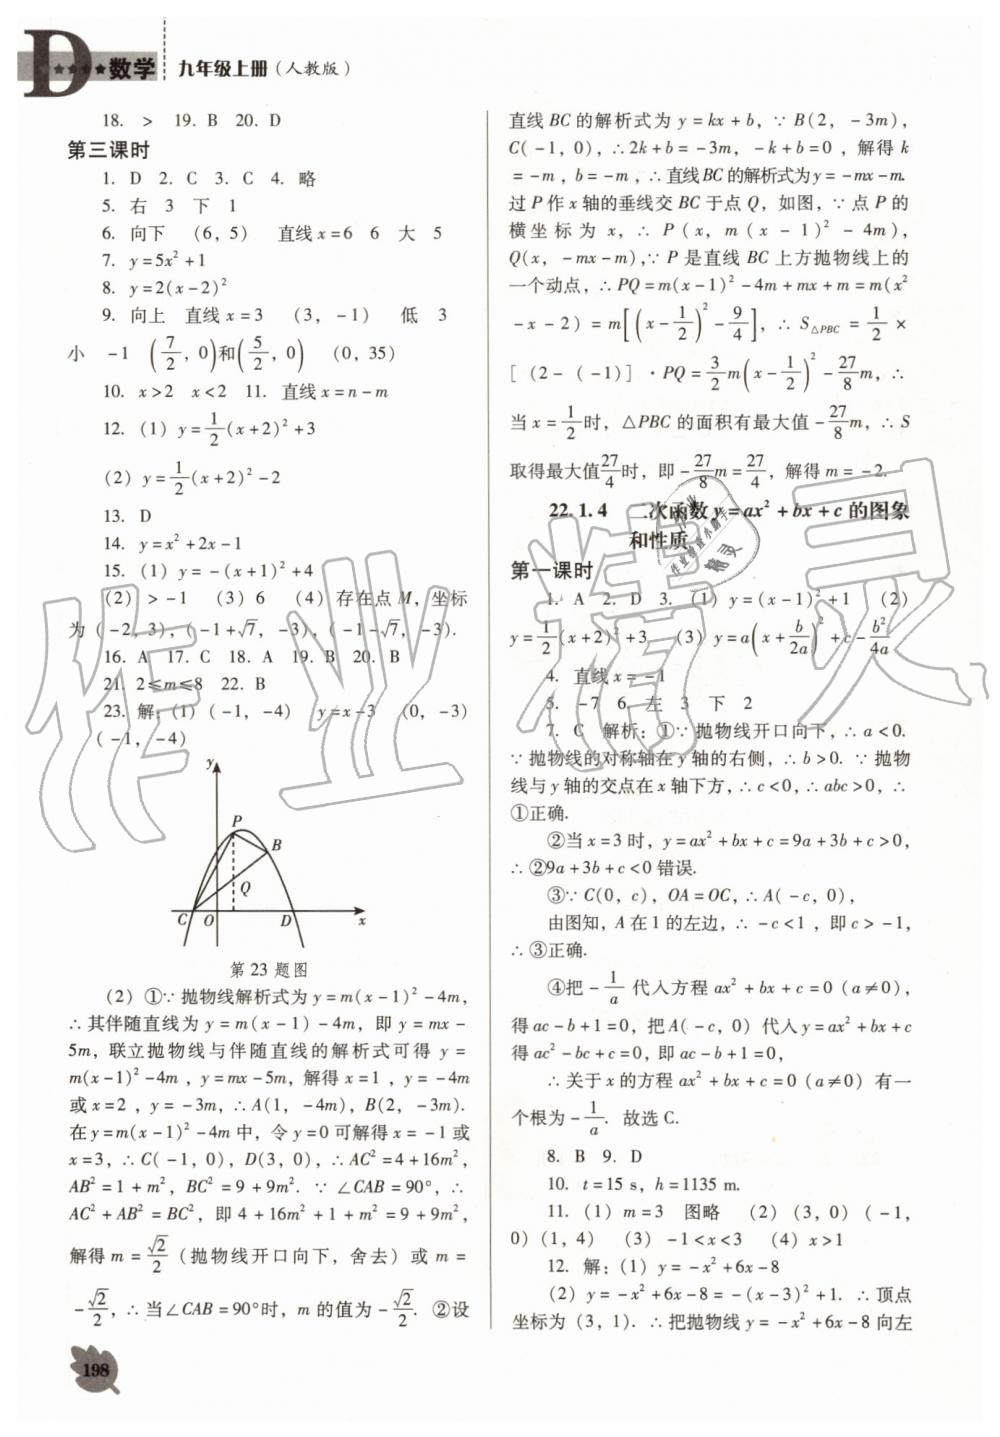 D ★★★★ 数学 九年级上册(人教版)
18. > 19. B 20. D
第三课时
1. D 2. C 3. C 4. 略
5. 右 3 下 1
6. 向下 (6, 5) 直线 x=6 6 大 5
7. y=5x²+1
8. y=2(x-2)²
9. 向上 直线 x=3 (3, -1) 低 3
小 -1 (7/2, 0)和(5/2, 0) (0, 35)
10. x>2 x<2 11. 直线 x=n-m
12. (1) y=1/2(x+2)²+3
(2) y=1/2(x+2)²-2
13. D
14. y=x²+2x-1
15. (1) y=-(x+1)²+4
(2) >-1 (3) 6 (4) 存在点 M, 坐标
为 (-2, 3), (-1+√7, -3), (-1-√7, -3).
16. A 17. C 18. A 19. B 20. B
21. 2≤m≤8 22. B
23. 解: (1) (-1, -4) y=x-3 (0, -3)
(-1, -4)
y
P
B
Q
C O D x
第 23 题图
(2) ①∵ 抛物线解析式为 y=m(x-1)²-4m,
∴ 其伴随直线为 y=m(x-1)-4m, 即 y=mx-
5m, 联立抛物线与伴随直线的解析式可得 y=
m(x-1)²-4m , y=mx-5m, 解得 x=1 , y=-4m
或 x=2 , y=-3m, ∴ A(1, -4m), B(2, -3m).
在 y=m(x-1)²-4m 中, 令 y=0 可解得 x=-1 或
x=3, ∴ C(-1, 0), D(3, 0), ∴ AC²=4+16m²,
AB²=1+m², BC²=9+9m². ∵ ∠CAB=90°, ∴
AC²+AB²=BC², 即 4+16m²+1+m²=9+9m²,
解得 m=√2/2 (抛物线开口向下, 舍去) 或 m=
-√2/2, ∴ 当∠CAB=90°时, m 的值为 -√2/2. ②设
直线 BC 的解析式为 y=kx+b, ∵ B(2, -3m),
C(-1, 0), ∴ 2k+b=-3m, -k+b=0 , 解得 k
=-m , b=-m , ∴ 直线 BC 的解析式为 y=-mx-m.
过 P 作 x 轴的垂线交 BC 于点 Q, 如图, ∵ 点 P 的
横坐标为 x, ∴ P(x, m(x-1)²-4m),
Q(x, -mx-m), ∵ P 是直线 BC 上方抛物线上的
一个动点, ∴ PQ=m(x-1)²-4m+mx+m=m(x²
-x-2)=m[(x-1/2)²-9/4], ∴ S△PBC=1/2×
[(2-(-1)]·PQ=3/2m(x-1/2)²-27/8m, ∴
当 x=1/2时, △PBC 的面积有最大值-27/8m, ∴ S
取得最大值27/4时, 即-27/8m=27/4, 解得 m=-2.
22.1.4 二次函数 y=ax²+bx+c 的图象
和性质
第一课时
1. A 2. D 3. (1) y=(x-1)²+1 (2)
y=1/2(x+2)²+3 (3) y=a(x+b/2a)²+c-b²/4a
4. 直线 x=-1
5. -7 6. 左 3 下 2
7. C 解析: ①∵ 抛物线开口向下, ∴ a<0.
∵ 抛物线的对称轴在 y 轴的右侧, ∴ b>0. ∵ 抛物
线与 y 轴的交点在 x 轴下方, ∴ c<0, ∴ abc>0, ∴
①正确.
②当 x=3 时, y=ax²+bx+c=9a+3b+c>0,
∴ ②9a+3b+c<0 错误.
③∵ C(0, c), OA=OC, ∴ A(-c, 0),
由图知, A 在 1 的左边, ∴ -c<1 , 即 c>-1,
∴ ③正确.
④把 -1/a 代入方程 ax²+bx+c=0 (a≠0),
得 ac-b+1=0, 把 A(-c, 0) 代入 y=ax²+bx+c
得 ac²-bc+c=0, 即 ac-b+1=0,
∴ 关于 x 的方程 ax²+bx+c=0 (a≠0) 有一
个根为-1/a. 故选 C.
8. B 9. D
10. t=15 s, h=1135 m.
11. (1) m=3 图略 (2) (3, 0) (-1,
0) (1, 4) (3) -1<x<3 (4) x>1
12. 解: (1) y=-x²+6x-8
(2) y=-x²+6x-8=-(x-3)²+1. ∴ 顶点
坐标为 (3, 1). ∴ 把抛物线 y=-x²+6x-8 向左
198
作业精灵